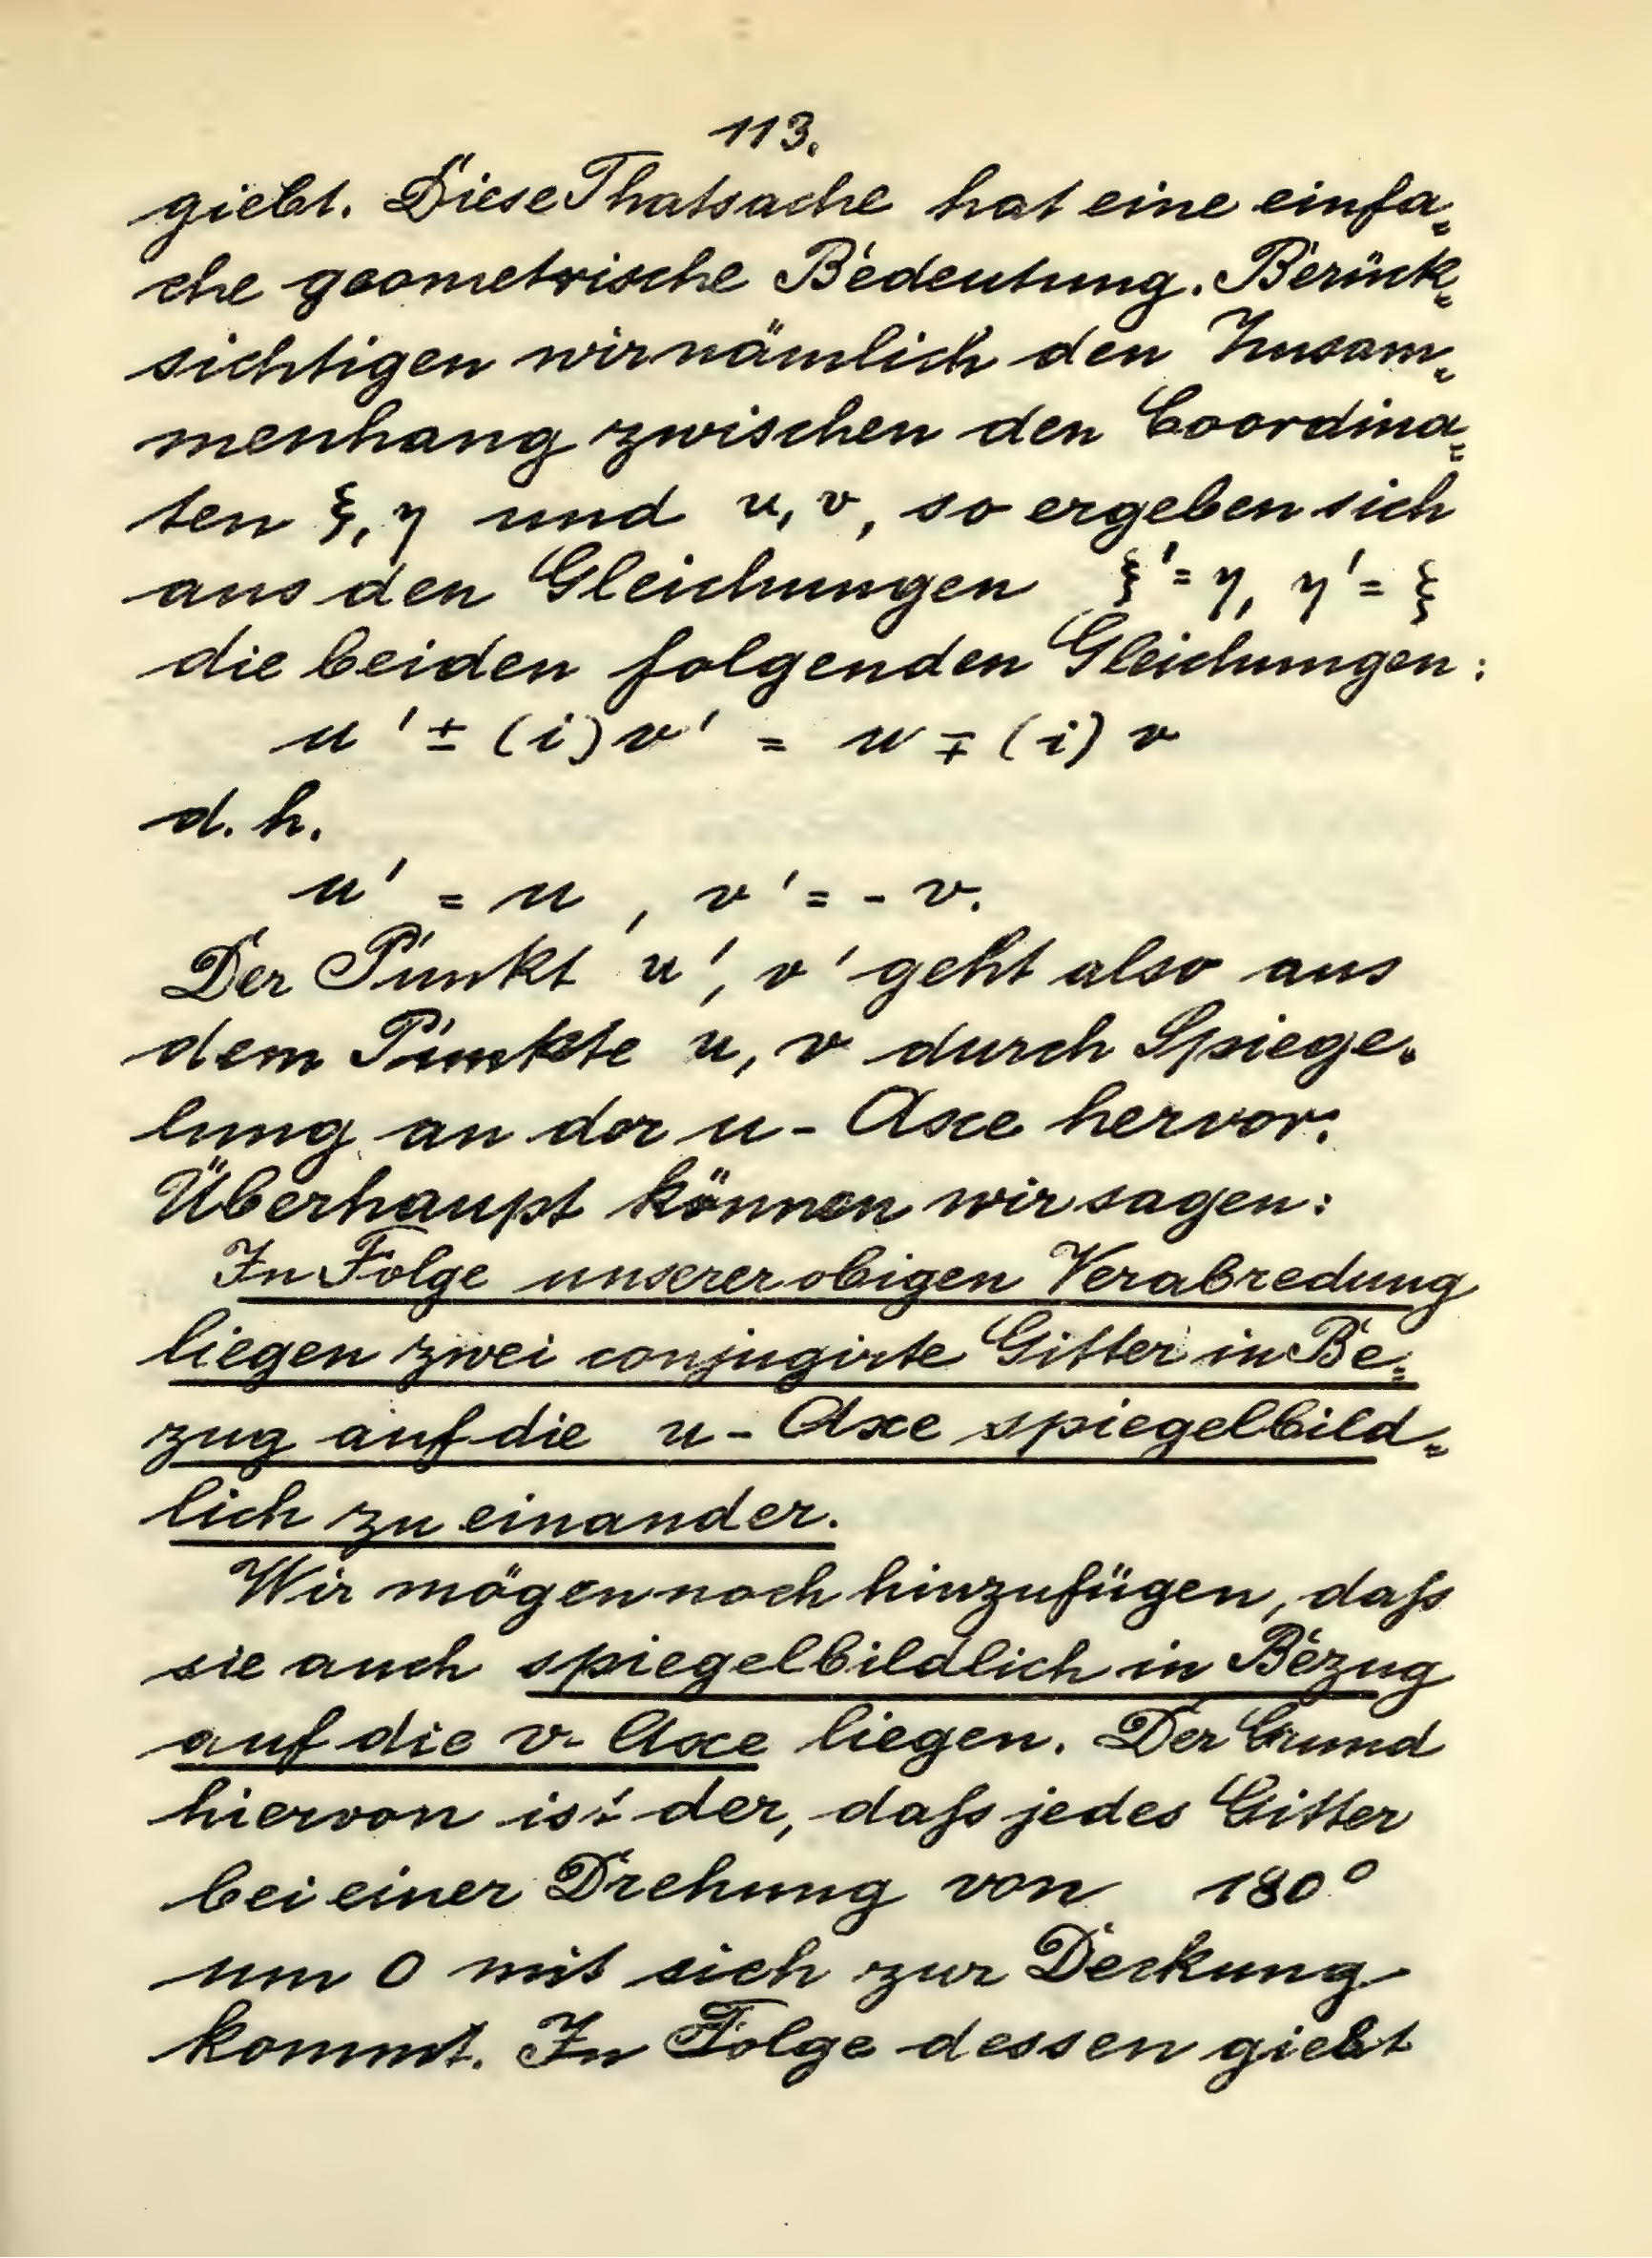 113.
giebt. Diese Thatsache hat eine einfa=
che geometrische Bedeutung. Berück=
sichtigen wir nämlich den Zusam=
menhang zwischen den Coordina=
ten ξ, η und u, v, so ergeben sich
aus den Gleichungen ξ' = η, η' = ξ
die beiden folgenden Gleichungen:
u' ± (i) v' = u ∓ (i) v
d. h.
u' = u , v' = - v.
Der Punkt u', v' geht also aus
dem Punkte u, v durch Spiege=
lung an der u - Axe hervor.
Überhaupt können wir sagen:
In Folge unserer obigen Verabredung
liegen zwei conjugirte Gitter in Be=
zug auf die u - Axe spiegelbild=
lich zu einander.
Wir mögen noch hinzufügen, daſs
sie auch spiegelbildlich in Bezug
auf die v - Axe liegen. Der Grund
hiervon ist der, daſs jedes Gitter
bei einer Drehung von 180°
um 0 mit sich zur Deckung
kommt. In Folge dessen giebt